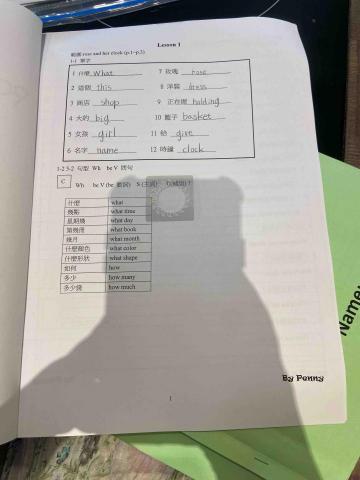 Lesson 1
範圍 rose and her clock (p.1~p.2)
1-1 單字
1 什麼 What 7 玫瑰 rose
2 這個 this 8 洋裝 dress
3 商店 shop 9 正在握 holding
4 大的 big 10 籃子 basket
5 女孩 girl 11 給 give
6 名字 name 12 時鐘 clock
1-2 句型 Wh be V 問句
C Wh be V (be 動詞) S (主詞) ?
什麼 what
幾點 what time
星期幾 what day
第幾冊 what book
幾月 what month
什麼顏色 what color
什麼形狀 what shape
如何 how
多少 how many
多少錢 how much
By Penny
1
Name: